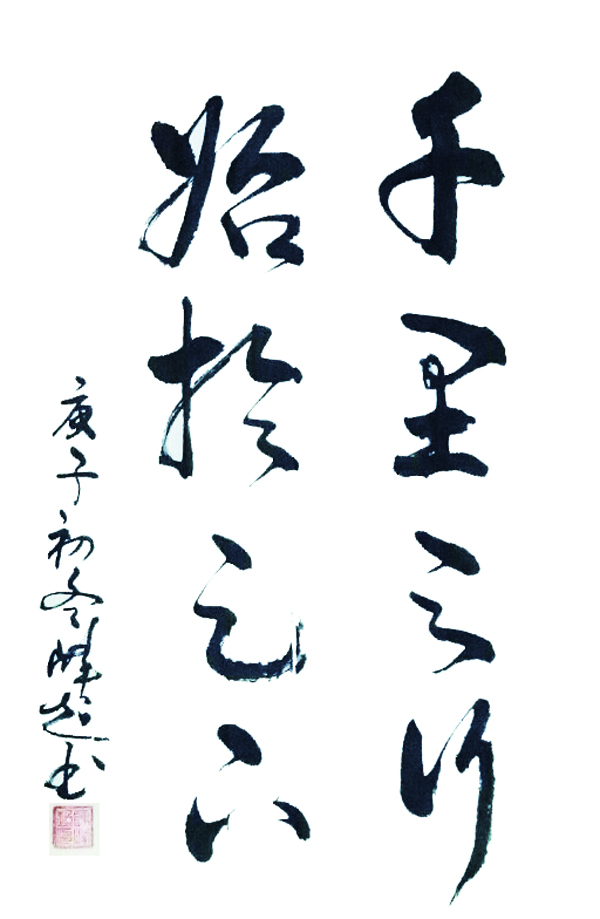 千里之行
始於足下
庚子初冬峰超书